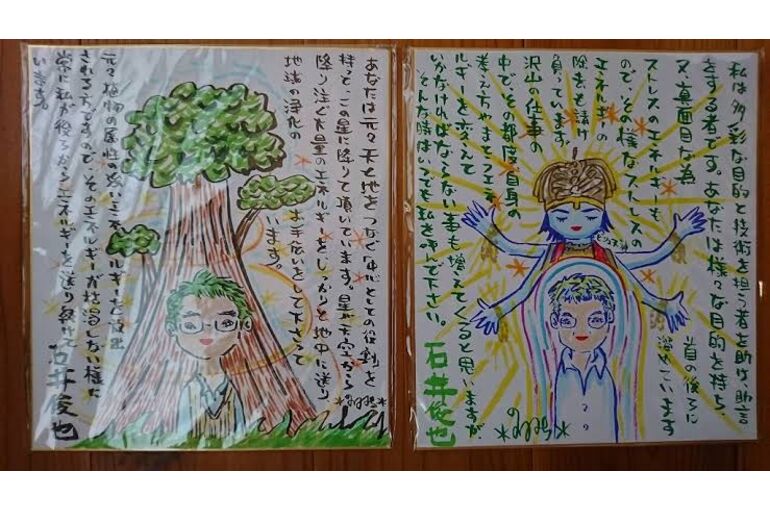 あなたは元々天と地をつなぐ「中心としての役割」を
持って、この星に降りて頂いています。星が天空から
降り注ぐ大量のエネルギーをしっかりと地中に送り
地球の浄化の
お手伝いをして下さって
います。
元々植物の属性の為、エネルギーを放出
される方ですので、そのエネルギーが枯渇しない様に
常に私が後ろからエネルギーを送り続けて
います。
石井俊也
私は多彩な目的と技術を担う者を助け、助言
をする者です。あなたは様々な目的を持ち、
又、真面目な為
首の後ろに
ストレスのエネルギーも
溜めています
ので、その様なストレスの
エネルギーの
除去も請け
負っています。
沢山の仕事の
中で、その都度自身の
考え方やまとうエネ
ルギーを変えて
いかなければならない事も増えてくると思いますが、
そんな時はいつでも私を呼んで下さい。
石井俊也
ピンク